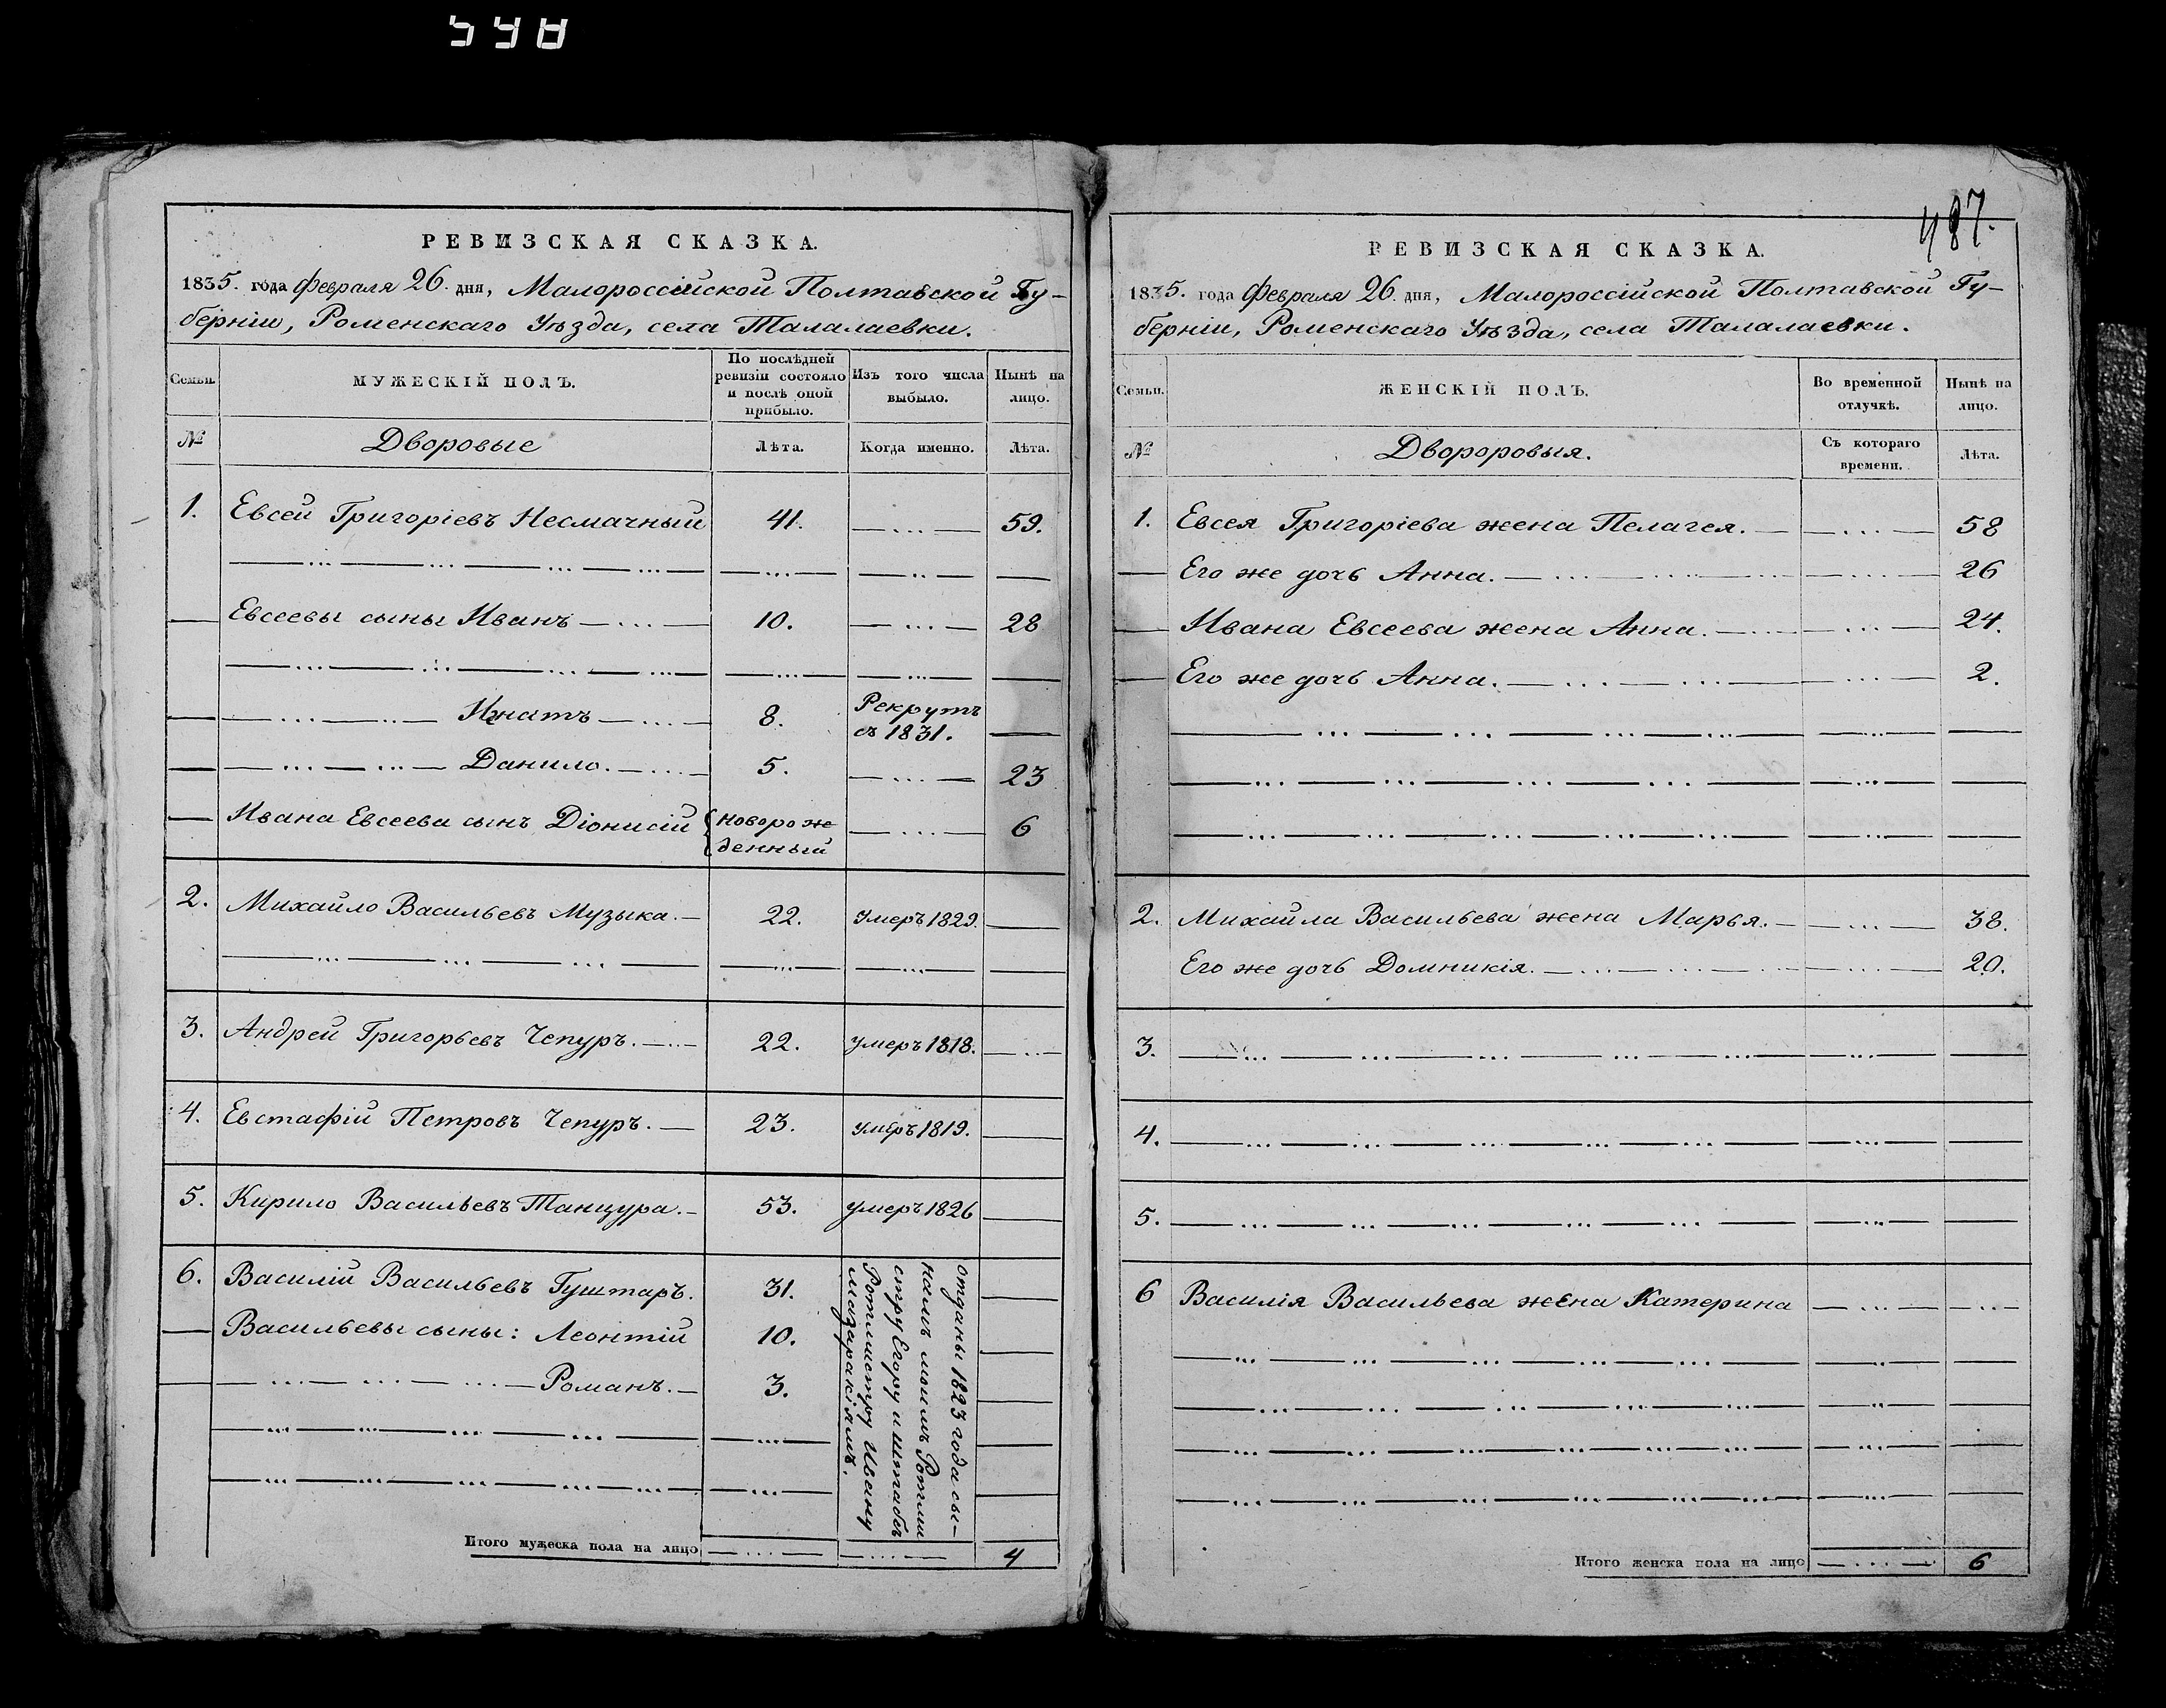 548
РЕВИЗСКАЯ СКАЗКА.
1835. года Февраля 26. дня, Малороссійской Полтавской Гу-
берніи, Роменскаго Уѣзда, села Талалаевки.
Семьи.
МУЖЕСКІЙ ПОЛЪ.
По послѣдней
ревизіи состояло
и послѣ оной
прибыло.
Изъ того числа
выбыло.
Нынѣ на
лицо.
№
Дворовые
Лѣта.
Когда именно.
Лѣта.
1. Евсей Григоріевъ Несмачный 41. 59.
Евсеевы сыны Иванъ 10. 28
Игнатъ 8. Рекрутъ
съ 1831.
Данило. 5. 23
Ивана Евсеева сынъ Діонисій новорож
денный 6
2. Михайло Васильевъ Музыка. 22. Умеръ 1829.
3. Андрей Григорьевъ Чепуръ. 22. умеръ 1818.
4. Евстафій Петровъ Чепуръ. 23. умеръ 1819.
5. Кирило Васильевъ Танцура. 53. умеръ 1826
6. Василій Васильевъ Гуштаръ. 31.
Васильевы сыны: Леонтій 10.
Романъ. 3.
отданы 1823 года сы-
намъ моимъ Ротми
стру Егору и Штабсъ
Ротмистру Ивану
Мазаракіямъ.
Итого мужеска пола на лицо 4
487.
РЕВИЗСКАЯ СКАЗКА.
1835. года Февраля 26. дня, Малороссійской Полтавской Гу-
берніи, Роменскаго Уѣзда, села Талалаевки.
Семьи.
ЖЕНСКІЙ ПОЛЪ.
Во временной
отлучкѣ.
Нынѣ на
лицо.
№
Двороровыя.
Съ котораго
времени.
Лѣта.
1. Евсея Григоріева жена Пелагея. 58
Его же дочь Анна. 26
Ивана Евсеева жена Анна. 24.
Его же дочь Анна. 2.
2. Михайла Васильева жена Марья. 38.
Его же дочь Домникія. 20.
3.
4.
5.
6 Василія Васильева жена Катерина
Итого женска пола на лицо 6